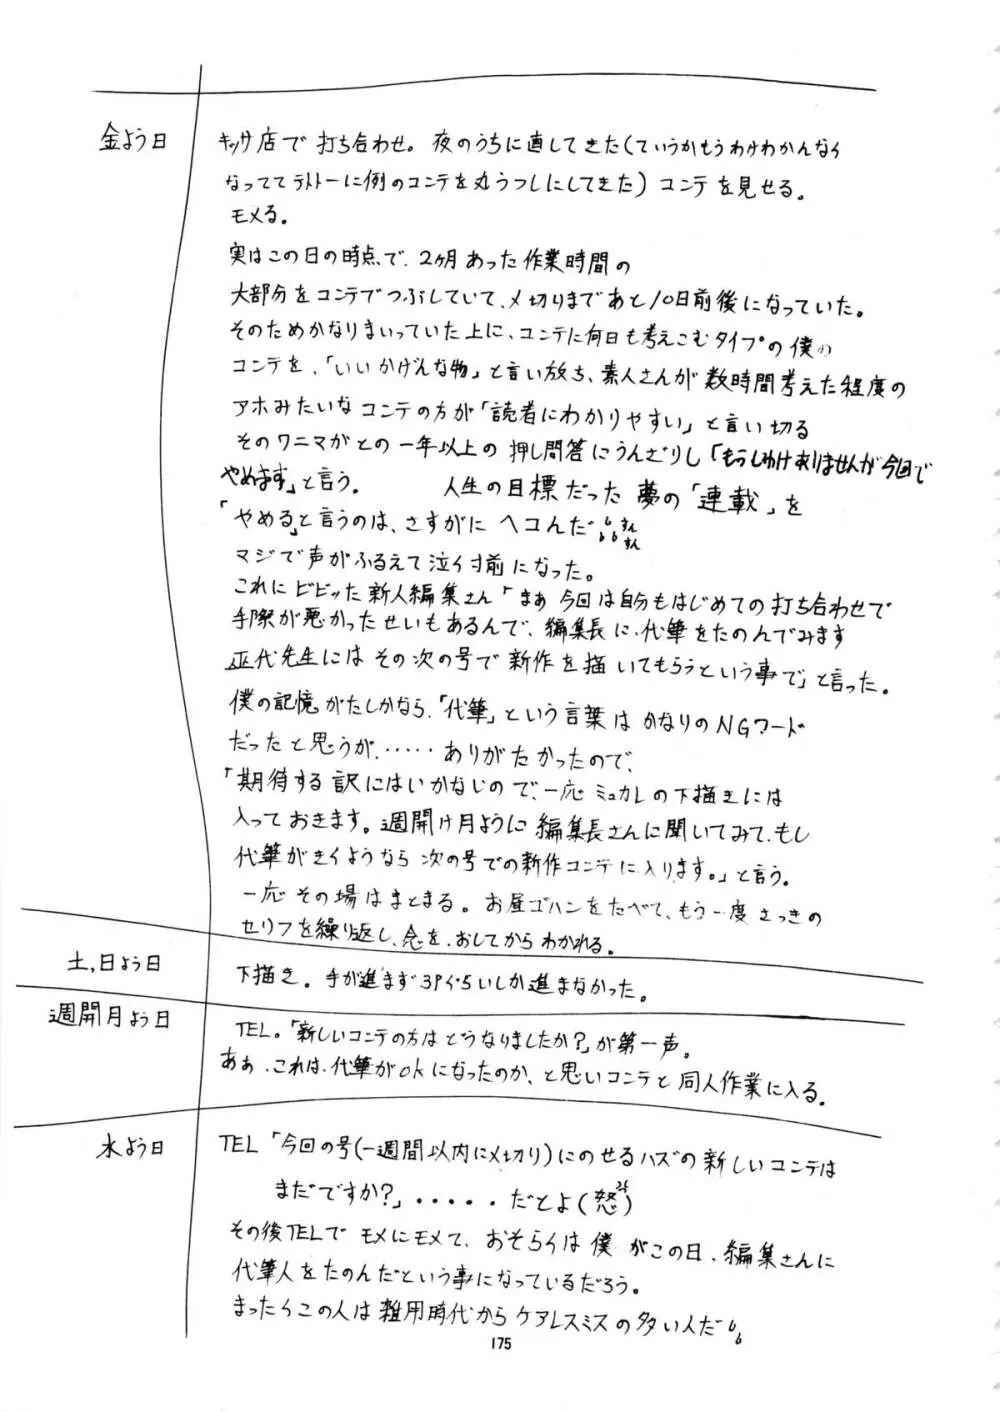 金よう日
キッサ店で打ち合わせ。夜のうちに直してきた(ていうかもうわけわかんなく
なっててテキトーに例のコンテを丸うつしにしてきた)コンテを見せる。
モメる。
実はこの日の時点で、2ヶ月あった作業時間の
大部分をコンテでつぶしていて、〆切りまであと10日前後になっていた。
そのためかなりまいっていた上に、コンテに何日も考えこむタイプの僕の
コンテを、「いいかげんな物」と言い放ち、素人さんが数時間考えた程度の
アホみたいなコンテの方が「読者にわかりやすい」と言い切る
そのワニマガとの一年以上の押し問答にうんざりし「もうしわけありませんが今回で
やめます」と言う。 人生の目標だった夢の「連載」を
「やめる」と言うのは、さすがにヘコんだ
マジで声がふるえて泣く寸前になった。
これにビビッた新人編集さん「まぁ今回は自分もはじめての打ち合わせで
手際が悪かったせいもあるんで、編集長に、代筆をたのんでみます
先生にはその次の号で新作を描いてもらうという事で」と言った。
僕の記憶がたしかなら、「代筆」という言葉はかなりのNGワード
だったと思うが、‥‥‥ありがたかったので、
「期待する訳にはいかないので、一応ミュカレの下描きには
入っておきます。週開け月ように編集長さんに聞いてみて、もし
代筆がきくようなら次の号での新作コンテに入ります。」と言う。
一応その場はまとまる。お昼ゴハンをたべて、もう一度さっきの
セリフを繰り返し、念を、おしてからわかれる。
土,日よう日
下描き。手が進まず3Pぐらいしか進まなかった。
週開月よう日
TEL。「新しいコンテの方はどうなりましたか?」が第一声。
ああ、これは、代筆がokになったのか、と思いコンテと同人作業に入る。
水よう日
TEL「今回の号(一週間以内に〆切り)にのせるハズの新しいコンテは
まだですか?」・・・・・だとよ(怒)
その後TELでモメにモメて、おそらくは僕がこの日、編集さんに
代筆人をたのんだという事になっているだろう。
まったくこの人は雑用時代からケアレスミスの多い人だ
175